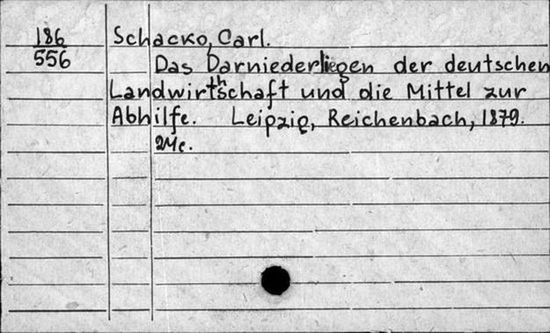 186
556
Schacko, Carl.
Das Darniederliegen der deutschen
Landwirthschaft und die Mittel zur
Abhilfe. Leipzig, Reichenbach, 1879.